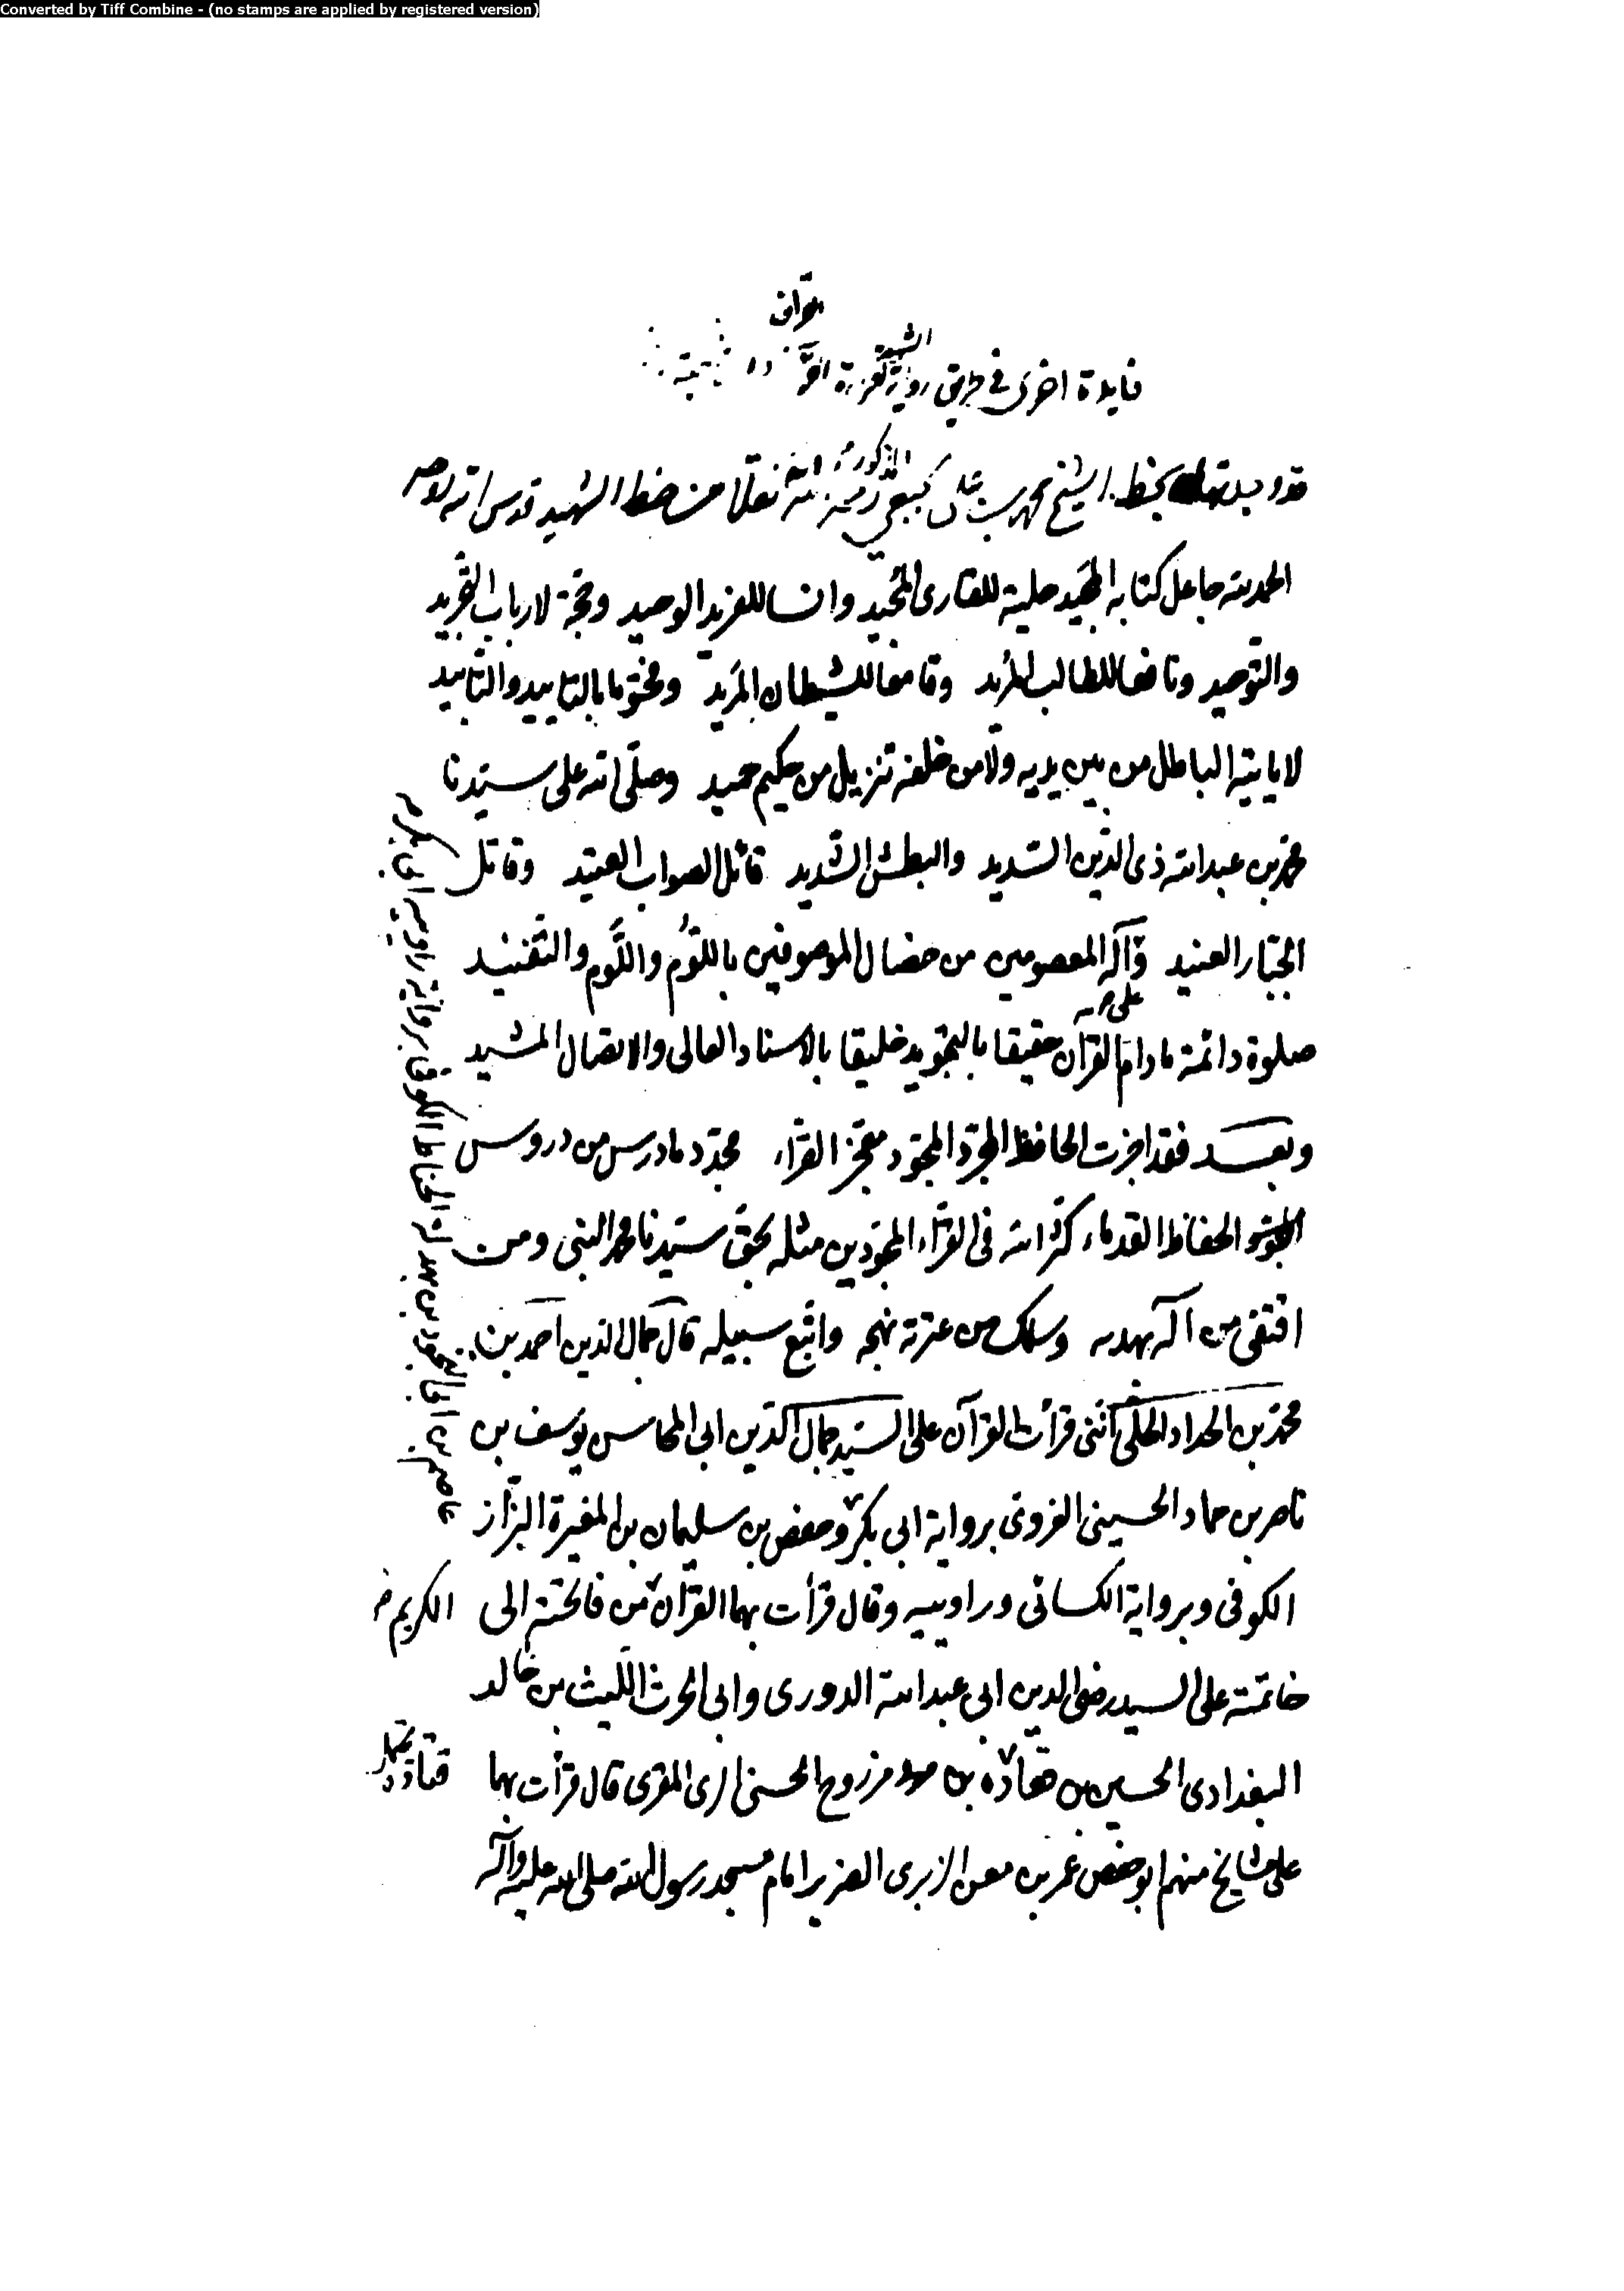 Converted by Tiff Combine - (no stamps are applied by registered version)
فايدة اخرى في طريق رواية الشهيد
قد وجدتها بخط الشيخ محمد بن علي الجبعي المذكور رحمه الله نقلا من خط الشهيد قدس الله روحه
الحمد لله جاعل كتابه المجيد حلية للقارى المجيد وانسا للفريد الوحيد وحجة لارباب التجريد
والتوحيد ونافعا للطالب المريد وقامعا للشيطان المريد ومختوما بالتاييد والتابيد
لا ياتيه الباطل من بين يديه ولا من خلفه تنزيل من حكيم حميد وصلى الله على سيدنا
محمد بن عبد الله ذى الدين السديد والبطش الشديد قائل الصواب العتيد وقاتل
الجبار العنيد وآله المعصومين من خصال الموصوفين باللؤم واللوم والتفنيد
صلوة دائمة ما دام القرآن حقيقا بالتجويد خليقا بالاسناد العالى والاتصال المشيد
وبعد فقد اجزت الحافظ المجود معجز القراء مجدد ما درس من دروس
الحفاظ القدماء كثر الله فى القراء المجودين مثله بحق سيدنا محمد النبى ومن
اقتفى من آله بهديه وسلك من عترته نهجه واتبع سبيله قال جمال الدين احمد بن
محمد بن الحداد الحلى اننى قرأت القرآن على السيد جمال الدين ابى المحاسن يوسف بن
ناصر بن حماد الحسينى الغروى برواية ابى بكر وحفص بن سليمان بن المغيرة البزاز
الكوفى وبرواية الكسائى وراوييه وقال قرأت بهما القرآن من فاتحته الى
الكريم
خاتمته على السيد رضى الدين ابى عبد الله الدورى وابى الحرث الليث بن خالد
البغدادى الحسين بن قتادة بن مزروع الحسنى المقرى قال قرأت بهما
قتادة
على مشايخ منهم ابو حفص عمر بن معن الزبرى الضرير امام مسجد رسول الله صلى الله عليه وآله
عاصم بن ابى النجود بن بهدلة الحناط الكوفى برواية راوييه ابى بكر